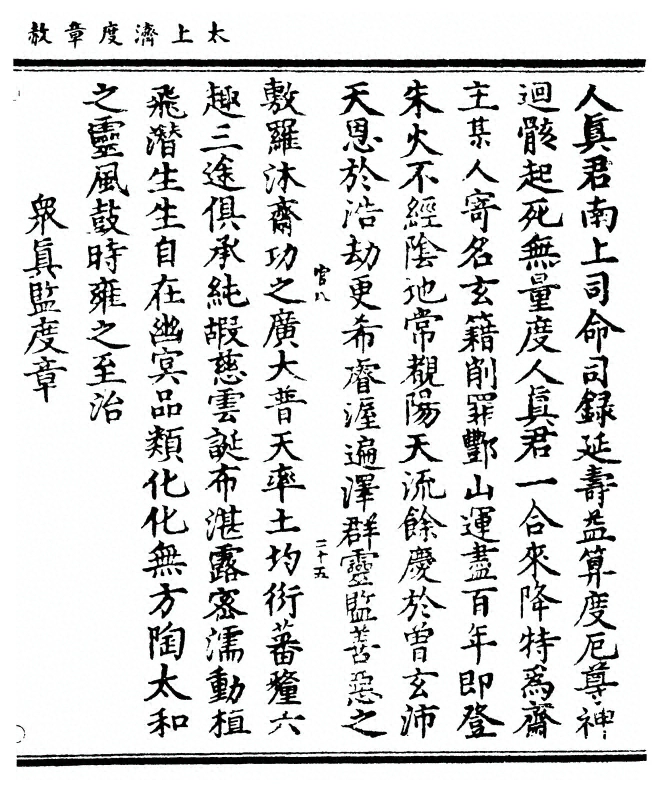 太上濟度章赦
人眞君南上司命司錄延壽益算度厄尊神
迴骸起死無量度人眞君一合來降特爲齋
主某人寄名玄籍削罪酆山運盡百年即登
朱火不經陰池常覩陽天流餘慶於曾玄沛
天恩於浩劫更希睿渥遍澤群靈監善惡之
官八
二十五
敷羅沐齋功之廣大普天率土均衍蕃釐六
趣三途俱承純嘏慈雲誕布湛露密濡動植
飛潛生生自在幽冥品類化化無方陶太和
之靈風鼓時雍之至治
衆眞監度章